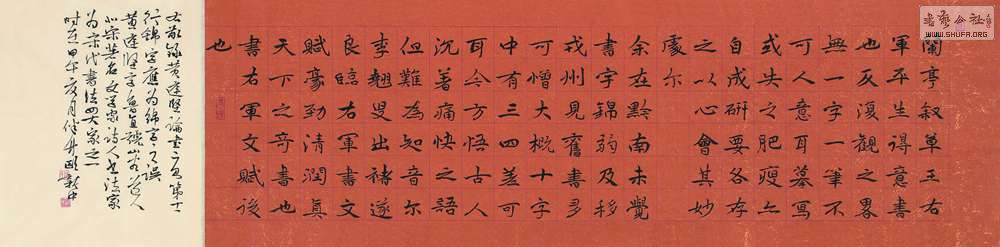 蘭亭叙草王右
軍平生得意書
也反復觀之略
無一字一筆不
可人意耳摹寫
或失之肥瘦亦
自成妍要各存
之以心會其妙
處尔
余在黔南未覺
書字錦弱及移
戎州見舊書多
可憎大概十字
中有三四差可
耳今方悟古人
沉著痛快之語
但難為知音尔
李翹叟出褚遂
良臨右軍書文
賦豪勁清潤真
天下之奇書也
書右軍文賦後
也
右敬錄黄庭堅論書之句第十一
行錦字應為綿字之誤
黄庭堅字魯直號山谷道人
北宋著名文學家詩人書法家
為宋代書法四大家之一
時在甲午夏月
書藝公社
WWW.SHUFA.ORG